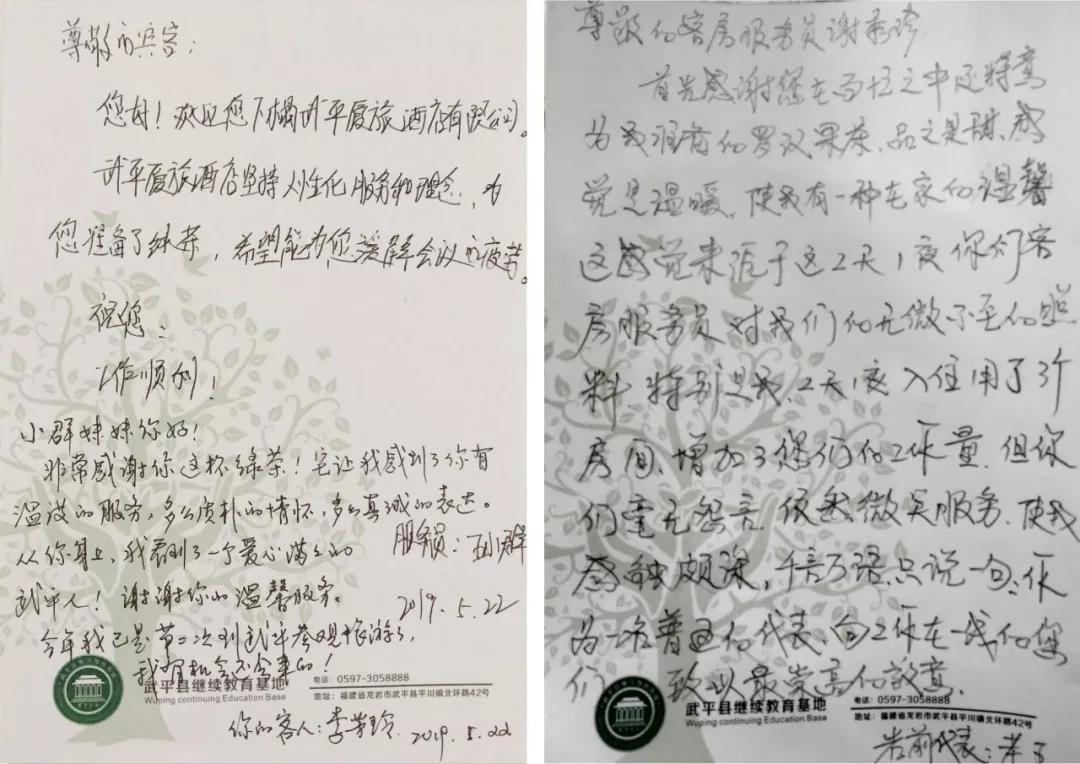 尊敬的宾客：
您好！欢迎您下榻武平厦旅酒店有限公司。
武平厦旅酒店坚持人性化服务和理念，为
您准备了绿茶，希望能为您缓解会议的疲劳。
祝您：
工作顺利！
小群妹妹你好！
非常感谢你这杯绿茶！它让我感到了你有
温度的服务，多么质朴的情怀，多么真诚的表达。
从你身上，我看到了一个爱心满满的
服务员：王小群
武平人！谢谢你的温馨服务。
2019.5.22
今年我已是第二次到武平参观旅游了，
我有机会还会来的！
武平县继续教育基地
Wuping continuing Education Base
电话：0597-3058888
地址：福建省龙岩市武平县平川镇北环路42号
你的客人：李芳玲
2019.5.22
尊敬的客房服务员谢秀珍
首先感谢您在百忙之中还特意
为我准备的罗汉果茶，品之是甜，感
觉是温暖，使我有一种在家的温馨
这感觉来源于这2天1夜你们客
房服务员对我们的无微不至的照
料 特别是我，2天1夜入住用了3个
房间，增加了您们的工作量，但你
们毫无怨言 依然微笑服务，使我
感触颇深，千言万语只说一句：作
为一名普通的代表，向工作在一线的您
们 致以最崇高的敬意，
武平县继续教育基地
Wuping continuing Education Base
电话：0597-3058888
地址：福建省龙岩市武平县平川镇北环路42号
岩前代表：